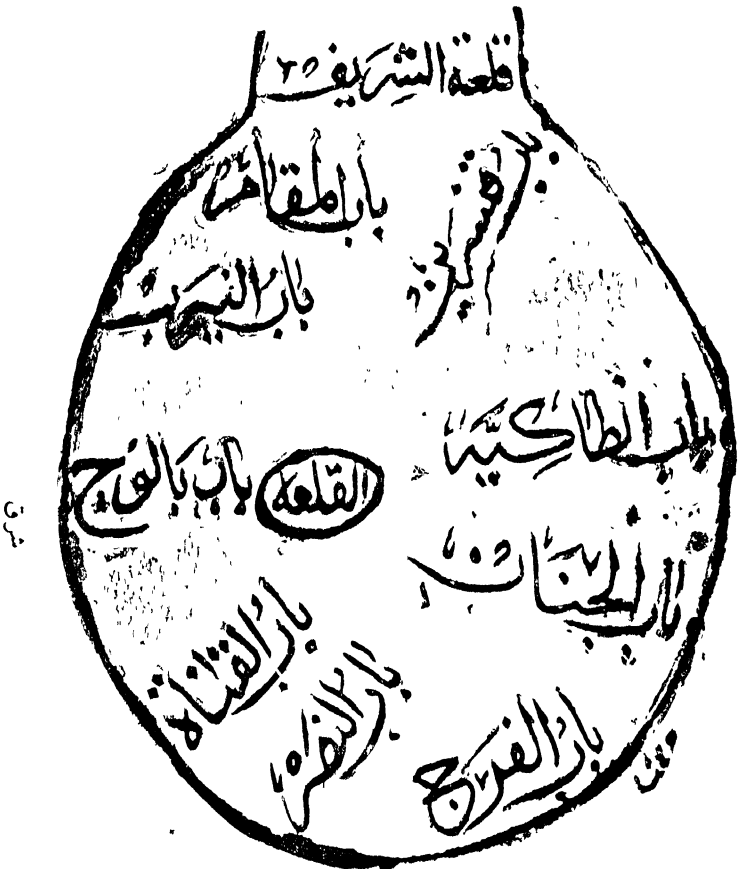 قلعة الشريف
باب المقام
باب قنسرين
باب النيرب
باب انطاكية
القلعة
باب بالوج
باب الجنان
باب القناة
باب النصر
باب الفرج
شرق